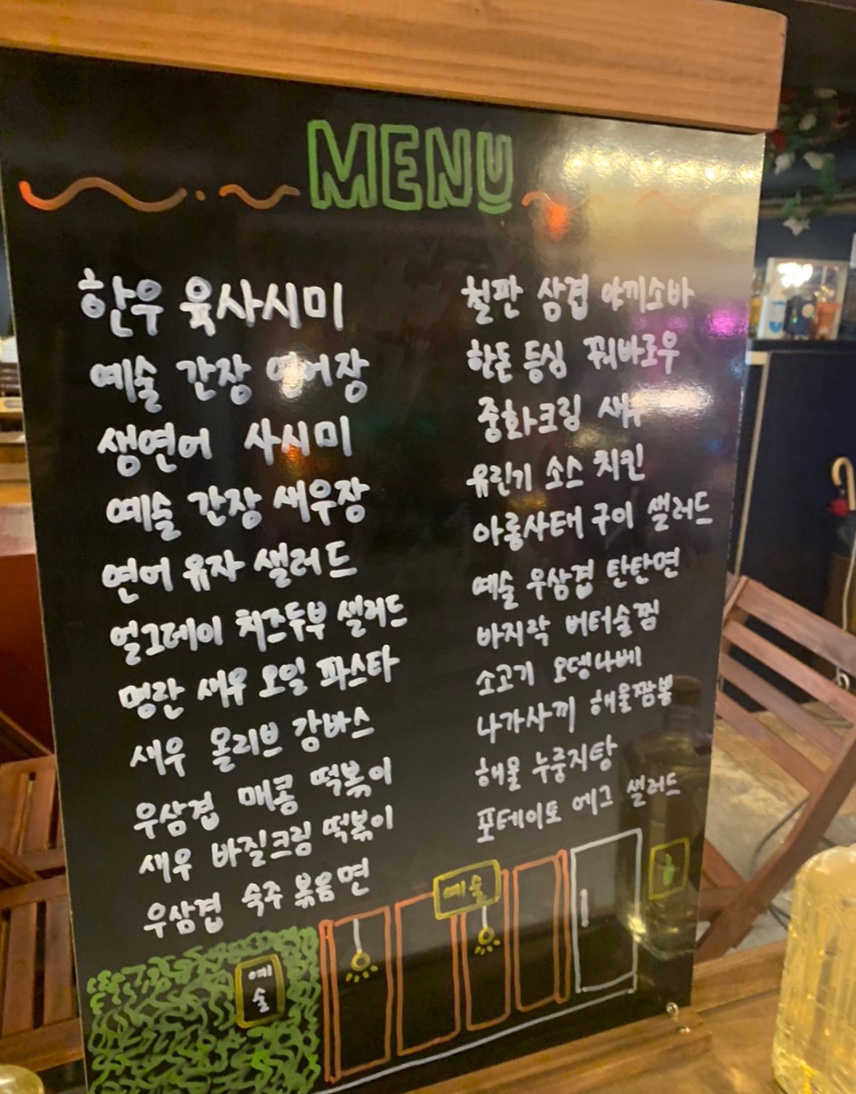 MENU
한우 육사시미
예술 간장 연어장
생연어 사시미
예술 간장 새우장
연어 유자 샐러드
얼그레이 치즈두부 샐러드
명란 새우 오일 파스타
새우 올리브 감바스
우삼겹 매콤 떡볶이
새우 바질크림 떡볶이
우삼겹 숙주 볶음면
철판 삼겹 야끼소바
한돈 등심 꿔바로우
중화크림 새우
유린기 소스 치킨
아롱사태 구이 샐러드
예술 우삼겹 탄탄면
바지락 버터술찜
소고기 오뎅나베
나가사끼 해물짬뽕
해물 누룽지탕
포테이토 에그 샐러드
예술
예술